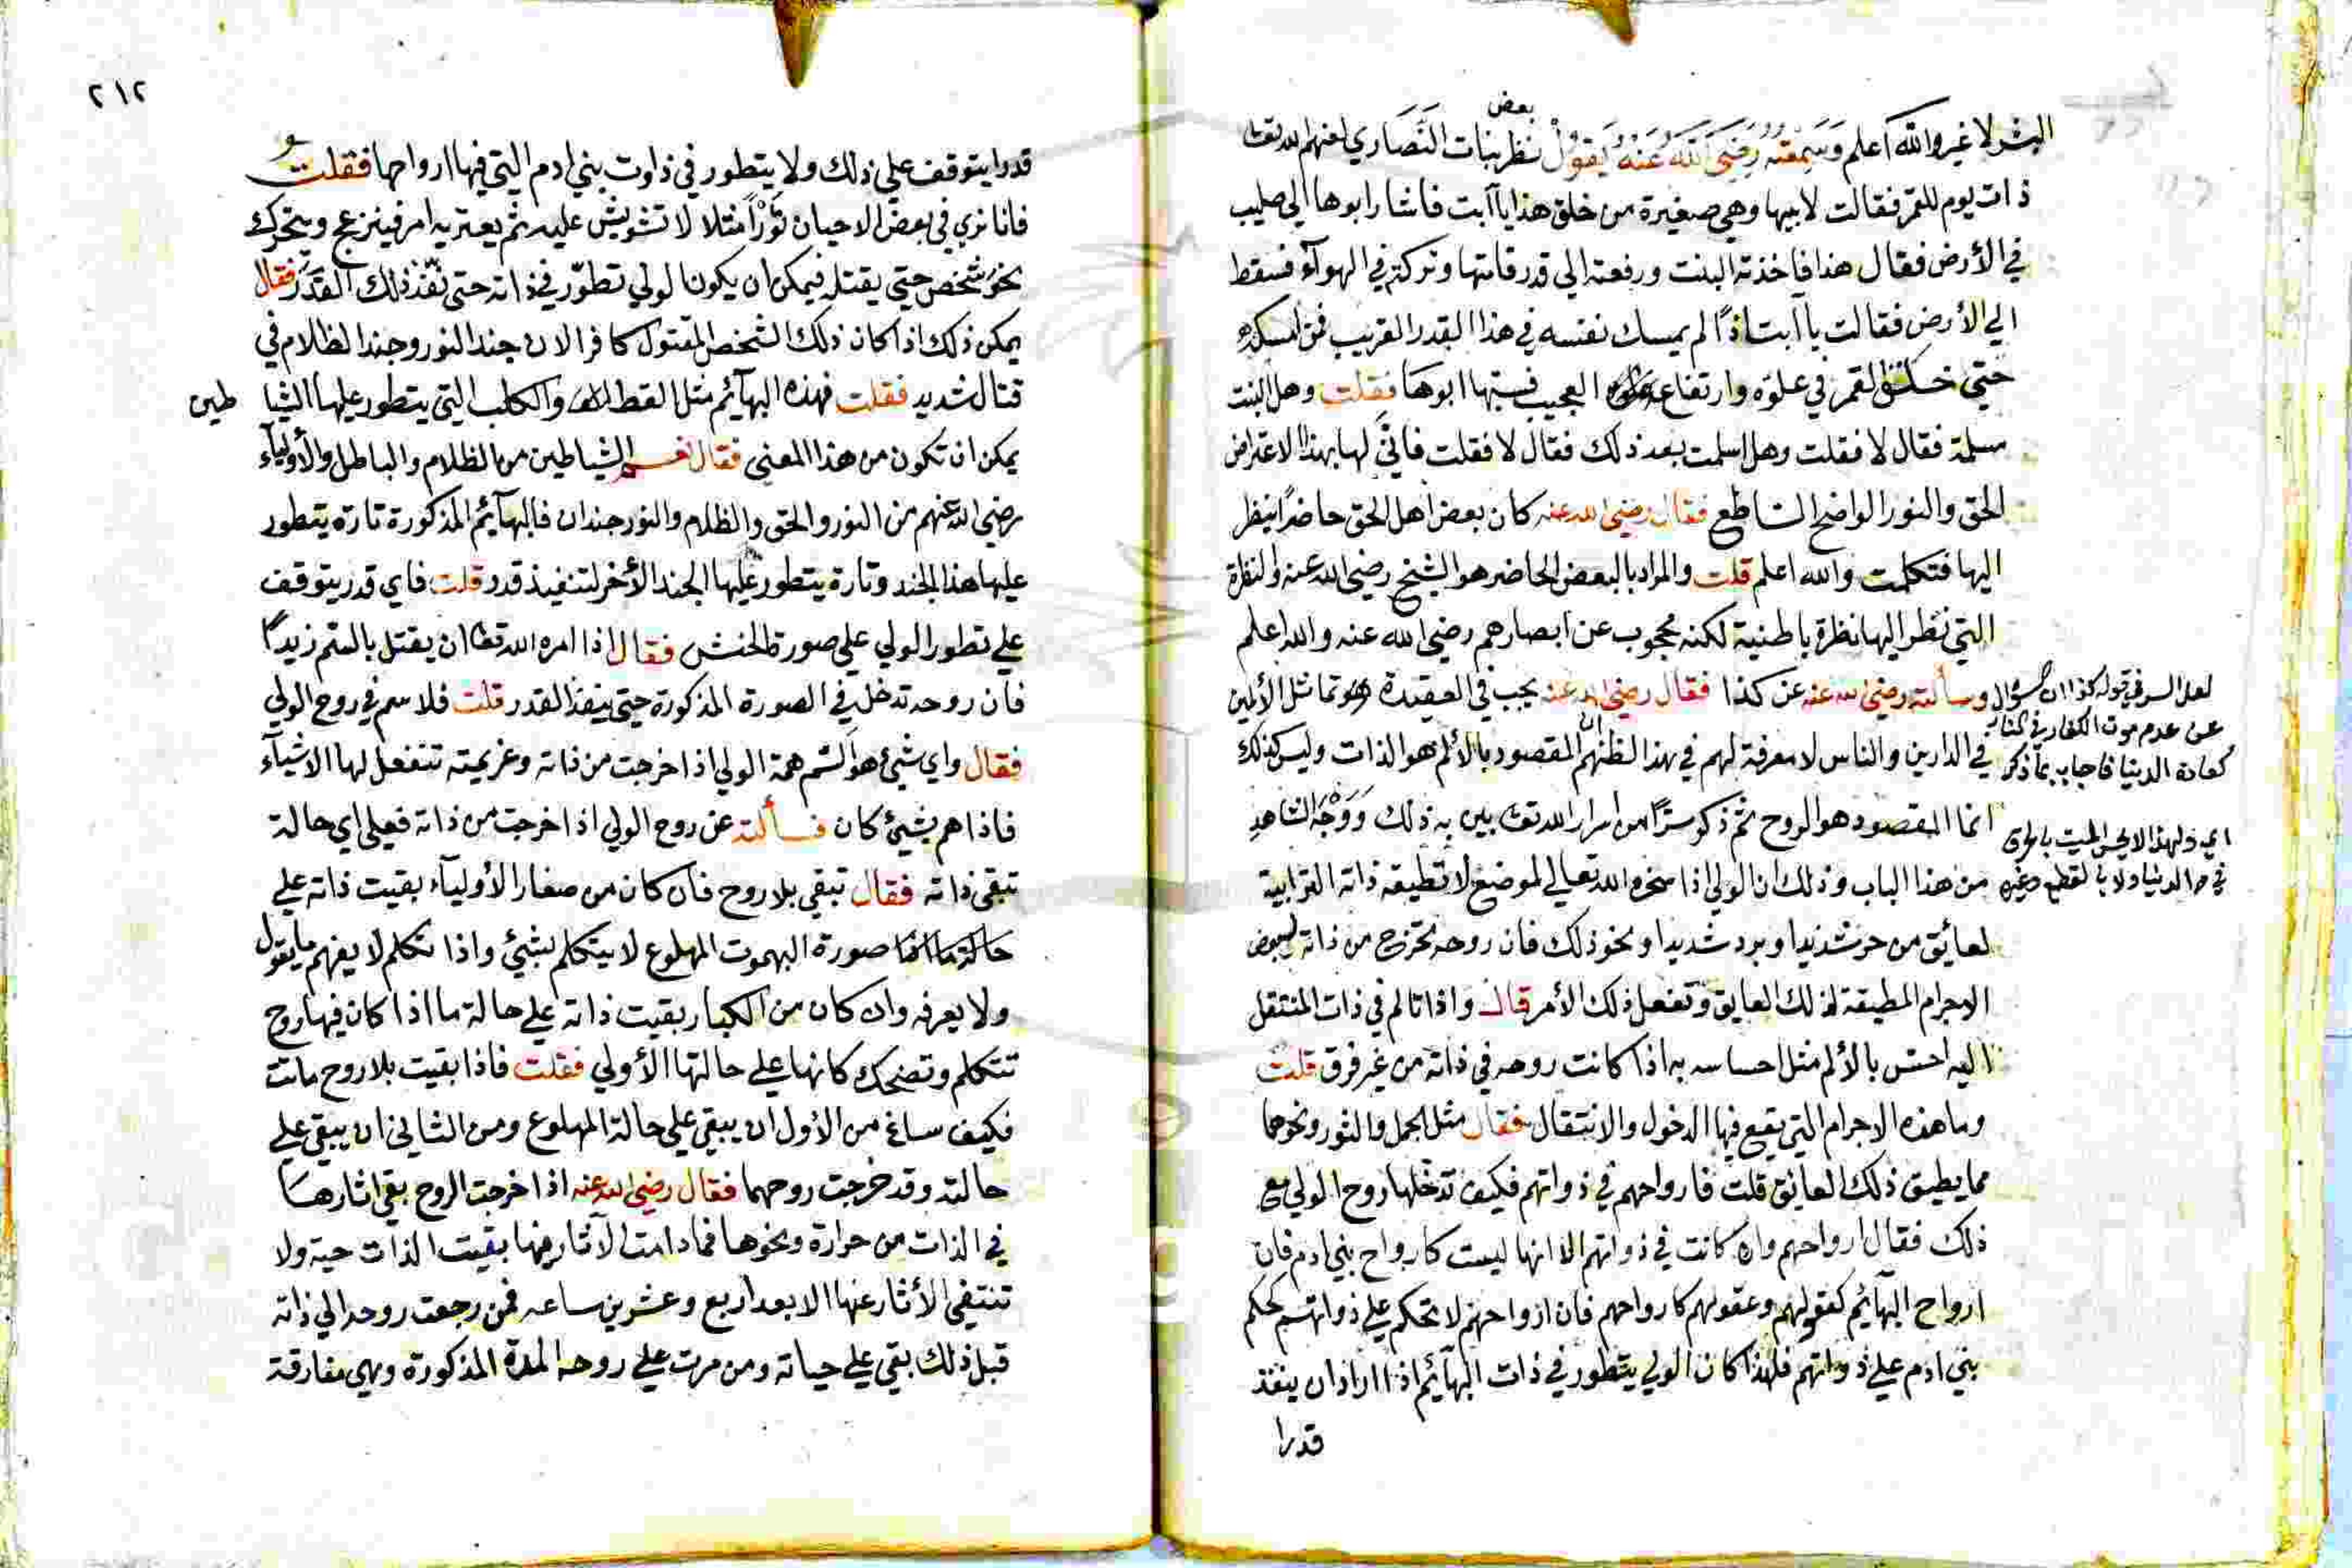 بعض
البشر لا غير والله اعلم وَسَمِعْتُه رَضِيَ اللهُ عَنْهُ يَقُولُ نظر بنات النَّصَارَي لعنهم الله تعا
ذات يوم للقمر فقالت لابيها وهي صغيرة من خلق هذا يا آبت فاشار ابوها الي صليب
في الأرض فقال هذا فاخذته البنت ورفعته الي قدر قامتها وتركته في الهوآء فسقط
الي الأرض فقالت يا آبت اذًا لم يمسك نفسه في هذا القدر القريب فمن امسكه
حتي خلق القمر في علوّه وارتفاعه العجيب فسبّها ابوها فقلت وهل البنت
مسلمة فقال لا فقلت وهل اسلمت بعد ذلك فقال لا فقلت فانّي لها بهذا الاعتراض
الحق والنور الواضح الساطع فقال رضي الله عنه كان بعض اهل الحق حاضرًا فنظر
اليها فتكلمت والله اعلم قلت والمراد بالبعض الحاضر هو الشيخ رضي الله عنه والنظرة
التي نظر اليها نظرة باطنية لكنه محجوب عن ابصارهم رضي الله عنه والله اعلم
وسألته رضي الله عنه عن كذا فقال رضي الله عنه يجب في العقيدة تماثل الألمين
في الدارين والناس لا معرفة لهم في بهذا لظنهم ان المقصود بالألم هو الذات وليس كذلك
انما المقصود هو الروح ثم ذكر سرًّا من اسرار الله تعا بين به ذلك وَوَجْهُ الشاهد
من هذا الباب وذلك ان الولي اذا سخره الله تعالي لموضع لا تطيقه ذاته الترابية
لعائق من حر شديد او برد شديد او نحو ذلك فان روحه تخرج من ذاته لبعض
الاجرام المطيقة لذلك العايق وتفعل ذلك الأمر قال واذا تالم في ذات المنتقل
اليه احس بالألم مثل احساسه به اذا كانت روحه في ذاته من غير فرق قلت
وما هذه الاجرام التي يقع فيها الدخول والانتقال فقال مثل الجمل والثور ونحوهما
مما يطيق ذلك العائق قلت فارواحهم في ذواتهم فكيف تدخلها روح الولي مع
ذلك فقال ارواحهم وان كانت في ذواتهم الا انها ليست كارواح بني ادم فان
ارواح البهآئم كعقولهم وعقولهم كارواحهم فان ارواحهم لا تحكم علي ذواتهم كحكم
بني ادم علي ذواتهم فلهذا كان الولي يتطور في ذات البهآئم اذا اراد ان ينفذ
قدرا
لعل السر في قوله كذا ان السؤال
عن عدم موت الكفار في النار
كعادة الدنيا فاجاب بما ذكر
اي ولهذا لا يحس الميت بالحرق
في الدنيا ولا بالقطع وغيره
٢١٢
قدرا يتوقف علي ذلك ولا يتطور في ذاوت بني ادم التي فيها ارواحها فقلت
فانا نري في بعض الاحيان ثَوْرًا مثلا لا تشويش عليه ثم يعتريه امر فينزعج ويتحرك
نحو شخص حتي يقتله فيمكن ان يكون الولي تطوّر في ذاته حتي نفّذ ذلك القَدَر فقال
يمكن ذلك اذا كان ذلك الشخص المقتول كافرا لان جند النور وجند الظلام في
قتال شديد فقلت فهذه البهآئم مثل القط والكلب التي يتطور عليها الشيا
طين
يمكن ان تكون من هذا المعني فقال نعم الشياطين من الظلام والباطل والأوليآء
رضي الله عنهم من النور والحق والظلام والنور جندان فالبهآئم المذكورة تارة يتطور
عليها هذا الجند وتارة يتطور عليها الجند الأخر لتنفيذ قدر قلت فاي قدر يتوقف
علي تطور الولي علي صورة الحنش فقال اذا امره الله تعا ان يقتل بالسم زيدًا
فان روحه تدخل في الصورة المذكورة حتي ينفذ القدر قلت فلا سم في روح الولي
فقال واي شيئ هو السم همة الولي اذا خرجت من ذاته وعزيمته تنفعل لها الاشيآء
فاذا هم بشيئ كان فسألته عن روح الولي اذا خرجت من ذاته فعلي اي حالة
تبقي ذاته فقال تبقي بلا روح فان كان من صغار الأوليآء بقيت ذاته علي
صورة البهموت المهلوع لا يتكلم بشيئ واذا تكلم لا يفهم ما يقول
ولا يعرفه وان كان من الكبار بقيت ذاته علي حالة ما اذا كان فيها روح
تتكلم وتضحك كانها علي حالتها الأولي فقلت فاذا بقيت بلا روح ماتت
فكيف ساغ من الأول ان يبقي علي حالة المهلوع ومن الثاني ان يبقي علي
حالته وقد خرجت روحهما فقال رضي الله عنه اذا خرجت الروح بقي اثارها
في الذات من حرارة ونحوها فما دامت الآثار فيها بقيت الذات حية ولا
تنتفي الأثار عنها الا بعد اربع وعشرين ساعه فمن رجعت روحه الي ذاته
قبل ذلك بقي علي حياته ومن مرت علي روحه المدة المذكورة وهي مفارقة